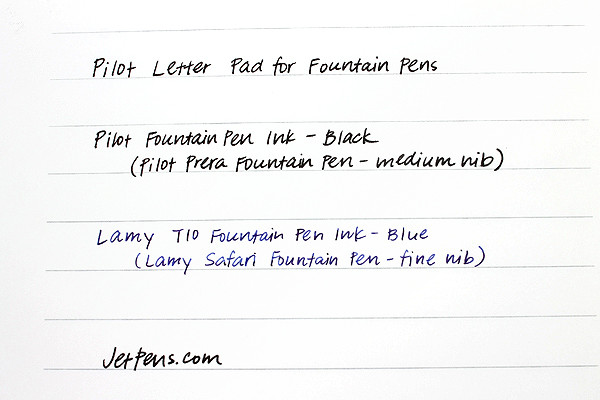 Pilot Letter Pad for Fountain Pens
Pilot Fountain Pen Ink - Black
(Pilot Prera Fountain Pen - medium nib)
Lamy T10 Fountain Pen Ink - Blue
(Lamy Safari Fountain Pen - fine nib)
JetPens.com